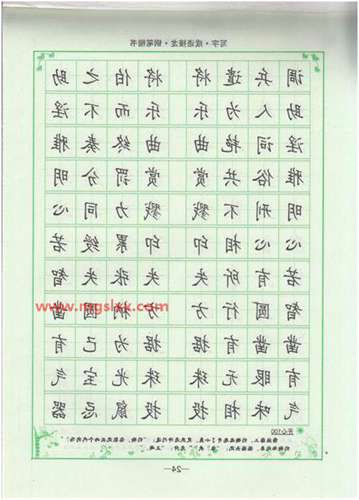 写字·成语接龙·钢笔楷书
调兵遣将 将伯之助
助人为乐 乐而不淫
淫词艳曲 曲终奏雅
雅俗共赏 赏罚分明
明刑不戮 戮力同心
心心相印 印累绶若
若有所失 失张失智
智圆行方 方枘圆凿
www.mgslxk.com
凿凿有据 据为己有
有眼无珠 珠光宝气
气味相投 投鼠忌器
开心100
—24—